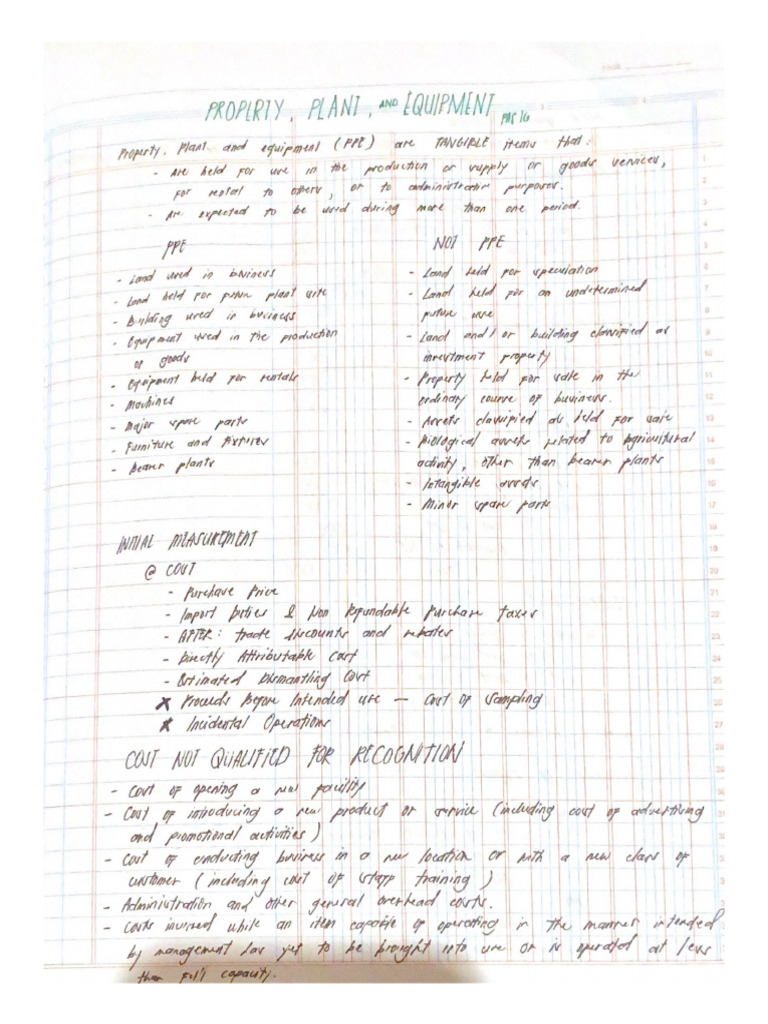 PROPERTY, PLANT, AND EQUIPMENT PAS 16
Property, Plant and equipment (PPE) are TANGIBLE items that:
- Are held for use in the production or supply or goods services,
for rental to others, or to administrative purposes.
- Are expected to be used during more than one period.
PPE
- Land used in business
- Land held for future plant site
- Building used in business
- Equipment used in the production
of goods
- Equipment held for rentals
- Machines
- Major spare parts
- Furniture and Fixtures
- Bearer plants
NOT PPE
- Land held for speculation
- Land held for an undetermined
future use
- Land and/or building classified as
investment property
- Property held for sale in the
ordinary course of business.
- Assets classified as held for sale
- Biological assets related to Agricultural
activity, other than bearer plants
- Intangible assets
- Minor spare parts
INITIAL MEASUREMENT
@ COST
- Purchase Price
- Import Duties & Non Refundable Purchase Taxes
- AFTER: trade discounts and rebates
- Directly Attributable Cost
- Estimated Dismantling Cost
x Proceeds Before Intended use — Cost of Sampling
x Incidental Operations
COST NOT QUALIFIED FOR RECOGNITION
- Cost of opening a new facility
- Cost of introducing a new product or service (including cost of advertising
and promotional activities)
- Cost of conducting business in a new location or with a new class of
customer (including cost of staff training)
- Administration and other general overhead costs.
- Costs incurred while an item capable of operating in the manner intended
by management has yet to be brought into use or is operated at less
than full capacity.